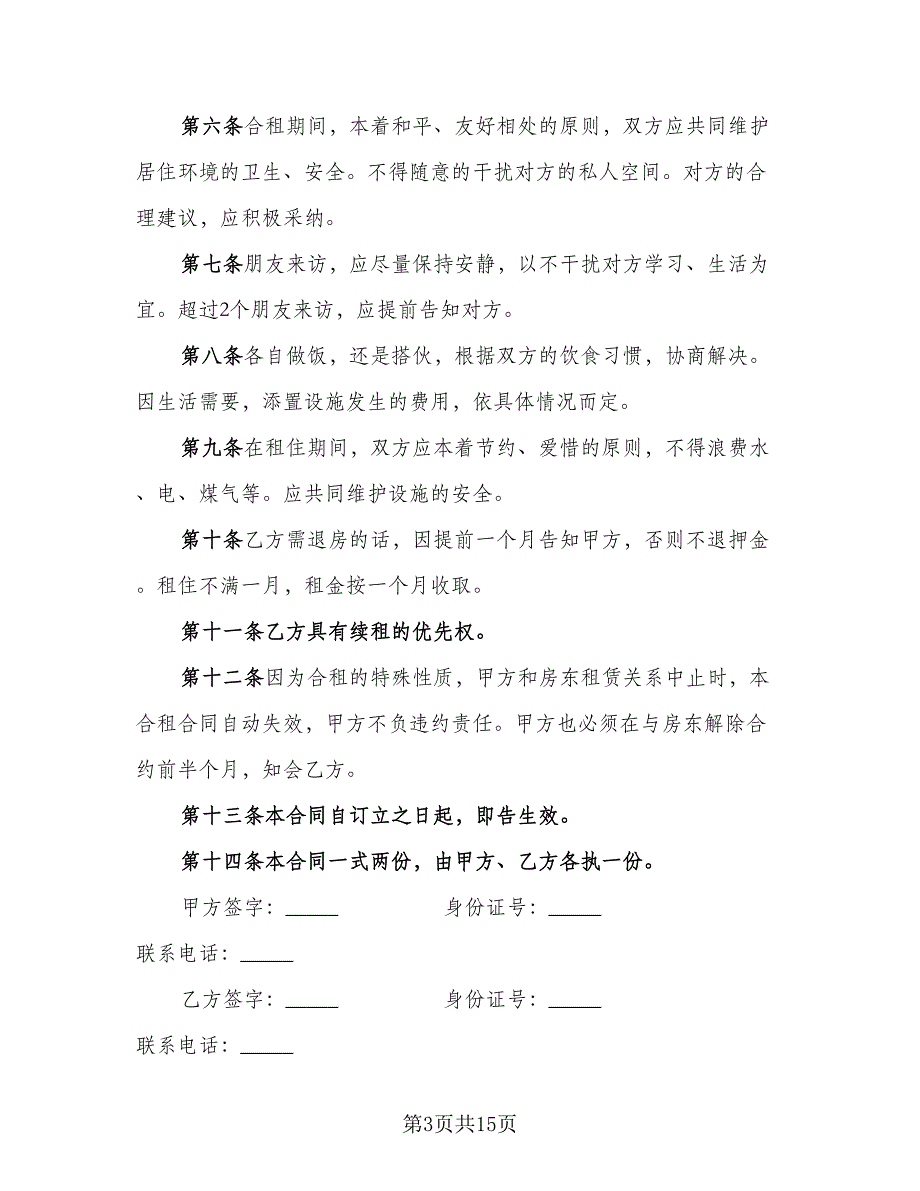 第六条合租期间，本着和平、友好相处的原则，双方应共同维护
居住环境的卫生、安全。不得随意的干扰对方的私人空间。对方的合
理建议，应积极采纳。
第七条朋友来访，应尽量保持安静，以不干扰对方学习、生活为
宜。超过2个朋友来访，应提前告知对方。
第八条各自做饭，还是搭伙，根据双方的饮食习惯，协商解决。
因生活需要，添置设施发生的费用，依具体情况而定。
第九条在租住期间，双方应本着节约、爱惜的原则，不得浪费水
、电、煤气等。应共同维护设施的安全。
第十条乙方需退房的话，因提前一个月告知甲方，否则不退押金
。租住不满一月，租金按一个月收取。
第十一条乙方具有续租的优先权。
第十二条因为合租的特殊性质，甲方和房东租赁关系中止时，本
合租合同自动失效，甲方不负违约责任。甲方也必须在与房东解除合
约前半个月，知会乙方。
第十三条本合同自订立之日起，即告生效。
第十四条本合同一式两份，由甲方、乙方各执一份。
甲方签字：_____ 身份证号：_____
联系电话：_____
乙方签字：_____ 身份证号：_____
联系电话：_____
第3页共15页